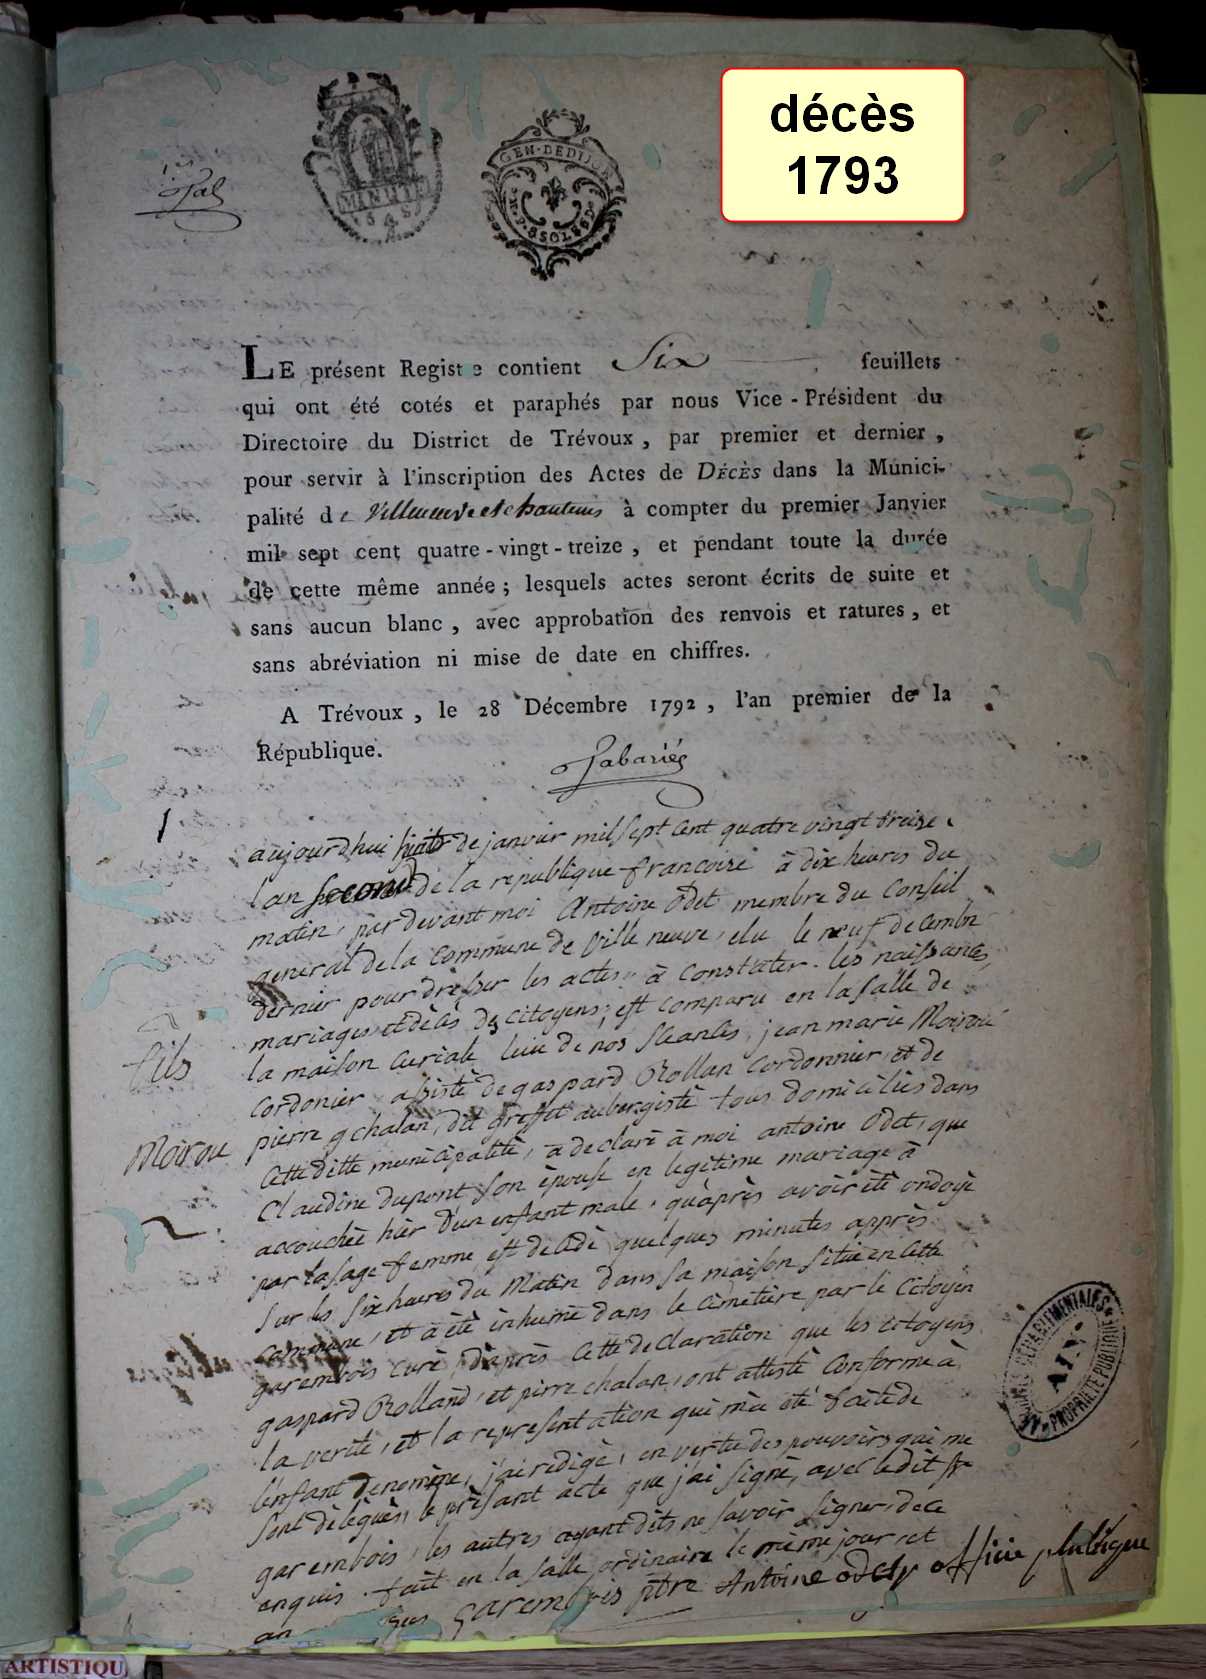 décès
1793
1er
Sab
MINUTE
GEN. DE DIJON
LE présent Registre contient Six feuillets
qui ont été cotés et paraphés par nous Vice-Président du
Directoire du District de Trévoux, par premier et dernier,
pour servir à l'inscription des Actes de DÉCÈS dans la Munici-
palité de Villeneuve et chanteins à compter du premier Janvier
mil sept cent quatre-vingt-treize, et pendant toute la durée
de cette même année; lesquels actes seront écrits de suite et
sans aucun blanc, avec approbation des renvois et ratures, et
sans abréviation ni mise de date en chiffres.
A Trévoux, le 28 Décembre 1792, l'an premier de la
République.
Sabariés
1
aujourdhui huit de janvier mil sept cent quatre vingt treize
l'an second de la republique francoise à dix heures du
matin, par devant moi Antoine Odet membre du Conseil
general de la commune de Ville neuve, elu le neuf decembre
dernier pour dresser les actes à constater les naissances,
mariages et décès des citoyens; est comparu en la salle de
la maison curiale lieu de nos sceances, jean marie Moirou
cordonier assisté de gaspard Rollan cordonnier, et de
pierre chalan, dit greffet aubergiste tous domiciliés dans
cette ditte municipalité, a declaré à moi antoine Odet, que
Claudine dupont son épouse en legitime mariage à
accouchée hier d'un enfant male, qu'après avoir été ondoyé
par la sage femme, est decédé quelques minutes apprès
sur les six heures du matin dans sa maison située en cette
commune, et à été inhumé dans le cimetiere par le Citoyen
garembois curé, d'après cette declaration que les citoyens
gaspard Rolland, et pierre chalan, ont attesté conforme à
la verité, et la representation qui m'a été faite de
l'enfant denomme, j'ai redigé, en vertu des pouvoirs qui me
sont délégués, le présant acte que j'ai signé, avec ledit Sr
garembois, les autres ayant dits ne savoir signer, de ce
enquis. fait en la salle ordinaire le même jour et
an sus garembois ptre Antoine odet officie plublique
fils
Moirou
ARCHIVES DÉPARTEMENTALES
AIN
PROPRIÉTÉ PUBLIQUE
ARTISTIQU